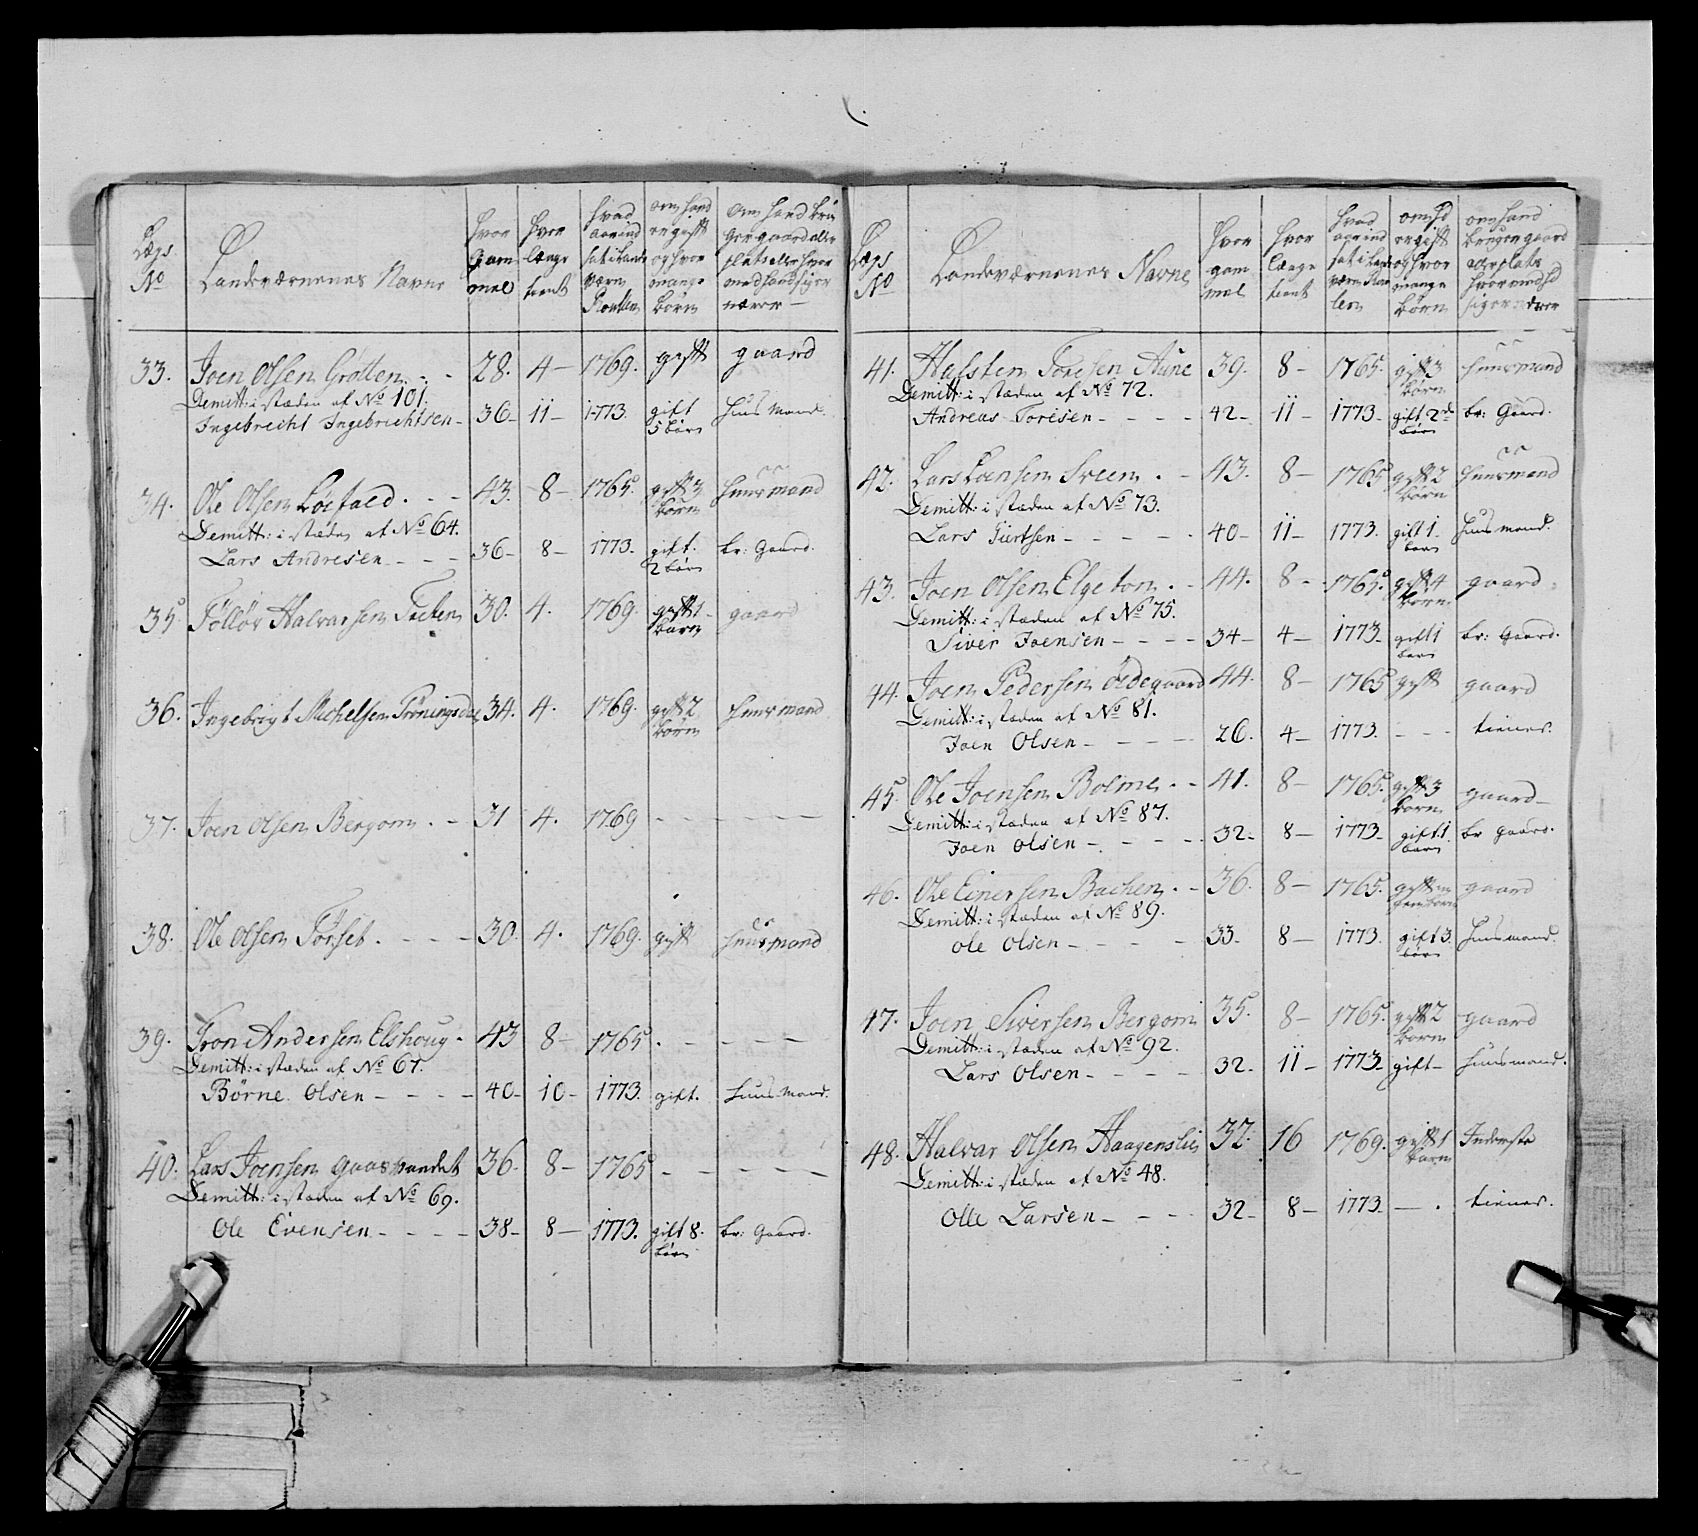 Lægs No
Landeværnenes Navne
Hvor gam mel
Hvor længe tient
hvad aar ind sat i Lande værn Roullen
om hand er gift og hvor mange børn
om hand bru ger gaard eller plats eller hvor med hand sig er nærer
33. Joen Olsen Grøtten - - 28. 4 - 1769. gift gaard
Demitt: i stæden af No 101.
Ingebrecht Ingebrichtsen - 36 - 11 - 1773. gift 5 børn Huus Mand.
34. Ole Olsen - - - 43. 8 - 1765. gift 3 børn Huusmand
Demitt: i stæden af No 64.
Lars Andresen - - - 36 - 8 - 1773 - gift. 2 børn br: Gaard.
35. Halvorsen 30. 4. 1769. gift 1 barn gaard
36. Ingebrigt Michelsen 34. 4. 1769. gift 2 børn Huusmand
37. Joen Olsen Bergom. - 31 4. 1769 - - - - - -
38. Ole Olsen Førset. - - - 30. 4. 1769. gift Huusmand
39. Tron Andersen Elshoug. 43 8 - 1765. - - - -
Demitt: i stæden af No 67.
Børne Olsen - - - - 40 - 10 - 1773. gift. Huus Mand.
40. Lars Joensen 36. 8 - 1765 - - - - -
Demitt: i stæden af No 69.
Ole Evensen - - - - 38 - 8 - 1773. gift 8. børn br: Gaard.
Lægs No
Landeværnenes Navne
Hvor gam mel
Hvor længe tient
hvad aar ind sat i Lande værn Roul len
om hd er gift og hvor mange børn
om hand bruger gaard eller plats hvor med hd sig ernærer
41. Halsten Toresen Aune 39. 8 - 1765. gift 3 børn Huusmand
Demitt: i stæden af No 72.
Andreas Toresen - - - - 42 - 11 - 1773 - gift 2de børn br: Gaard.
42. Lars Joensen Sveen. - 43. 8 - 1765 gift 2 børn Huusmand
Demitt: i stæden af No 73.
Lars - - - - - 40 - 11 - 1773. gift 1 barn Huus mand.
43. Joen Olsen Elgeton. - 44. 8 - 1765. gift 4 børn gaard
Demitt: i stæden af No 75.
Siver Joensen - - - - 34 - 4 - 1773 - gift 1 barn br: Gaard.
44. Joen Pedersen Ødegaard 44. 8 - 1765 gift gaard
Demitt: i stæden af No 81.
Joen Olsen - - - - - 26. 4 - 1773. - - - tiener.
45. Ole Joensen Bolme. - 41. 8 - 1765. gift 3 børn gaard -
Demitt: i stæden af No 87.
Joen Olsen - - - - - 32 - 8 - 1773 - gift. 1 barn br gaard.
46. Ole Einersen Bachen. - 36. 8 - 1765. gift gaard
Demitt: i stæden af No 89.
Ole Olsen - - - - 33 - 8 - 1773. gift 3 børn Huusmand.
47. Joen Siversen Bergom 35. 8 - 1765. gift 2 børn gaard
Demitt: i stæden af No 92.
Lars Olsen - - - - 32 - 11 - 1773 - gift - Huusmand.
48. Halvor Olsen Haagenslie 37. 16 1769. gift 1 barn Inderste
Demitt: i stæden af No 48.
Olle Larsen - - - - 32 - 8 - 1773 - - . tiener.